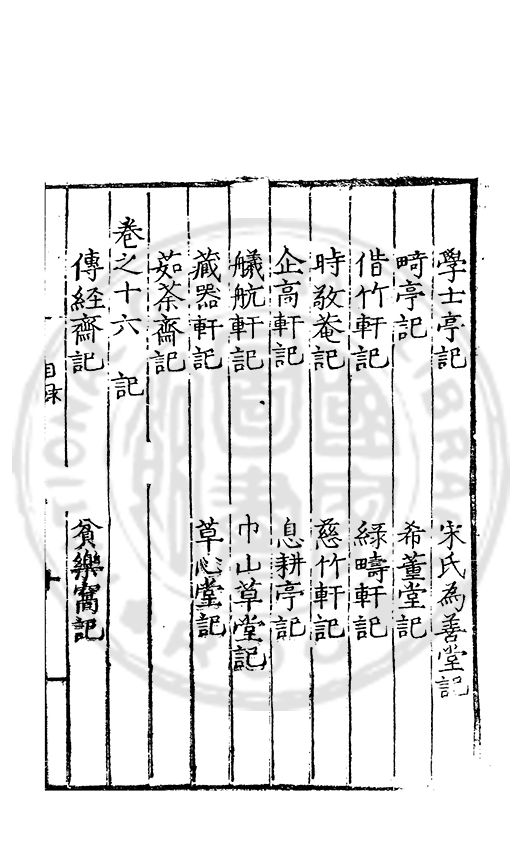 學士亭記 宋氏為善堂記
畸亭記 希董堂記
偕竹軒記 緑疇軒記
時敬菴記 慈竹軒記
企高軒記 息耕亭記
艤航軒記 巾山草堂記
藏器軒記 草心堂記
茹荼齋記
卷之十六 記
傳経齋記 貧樂窩記
目录 十